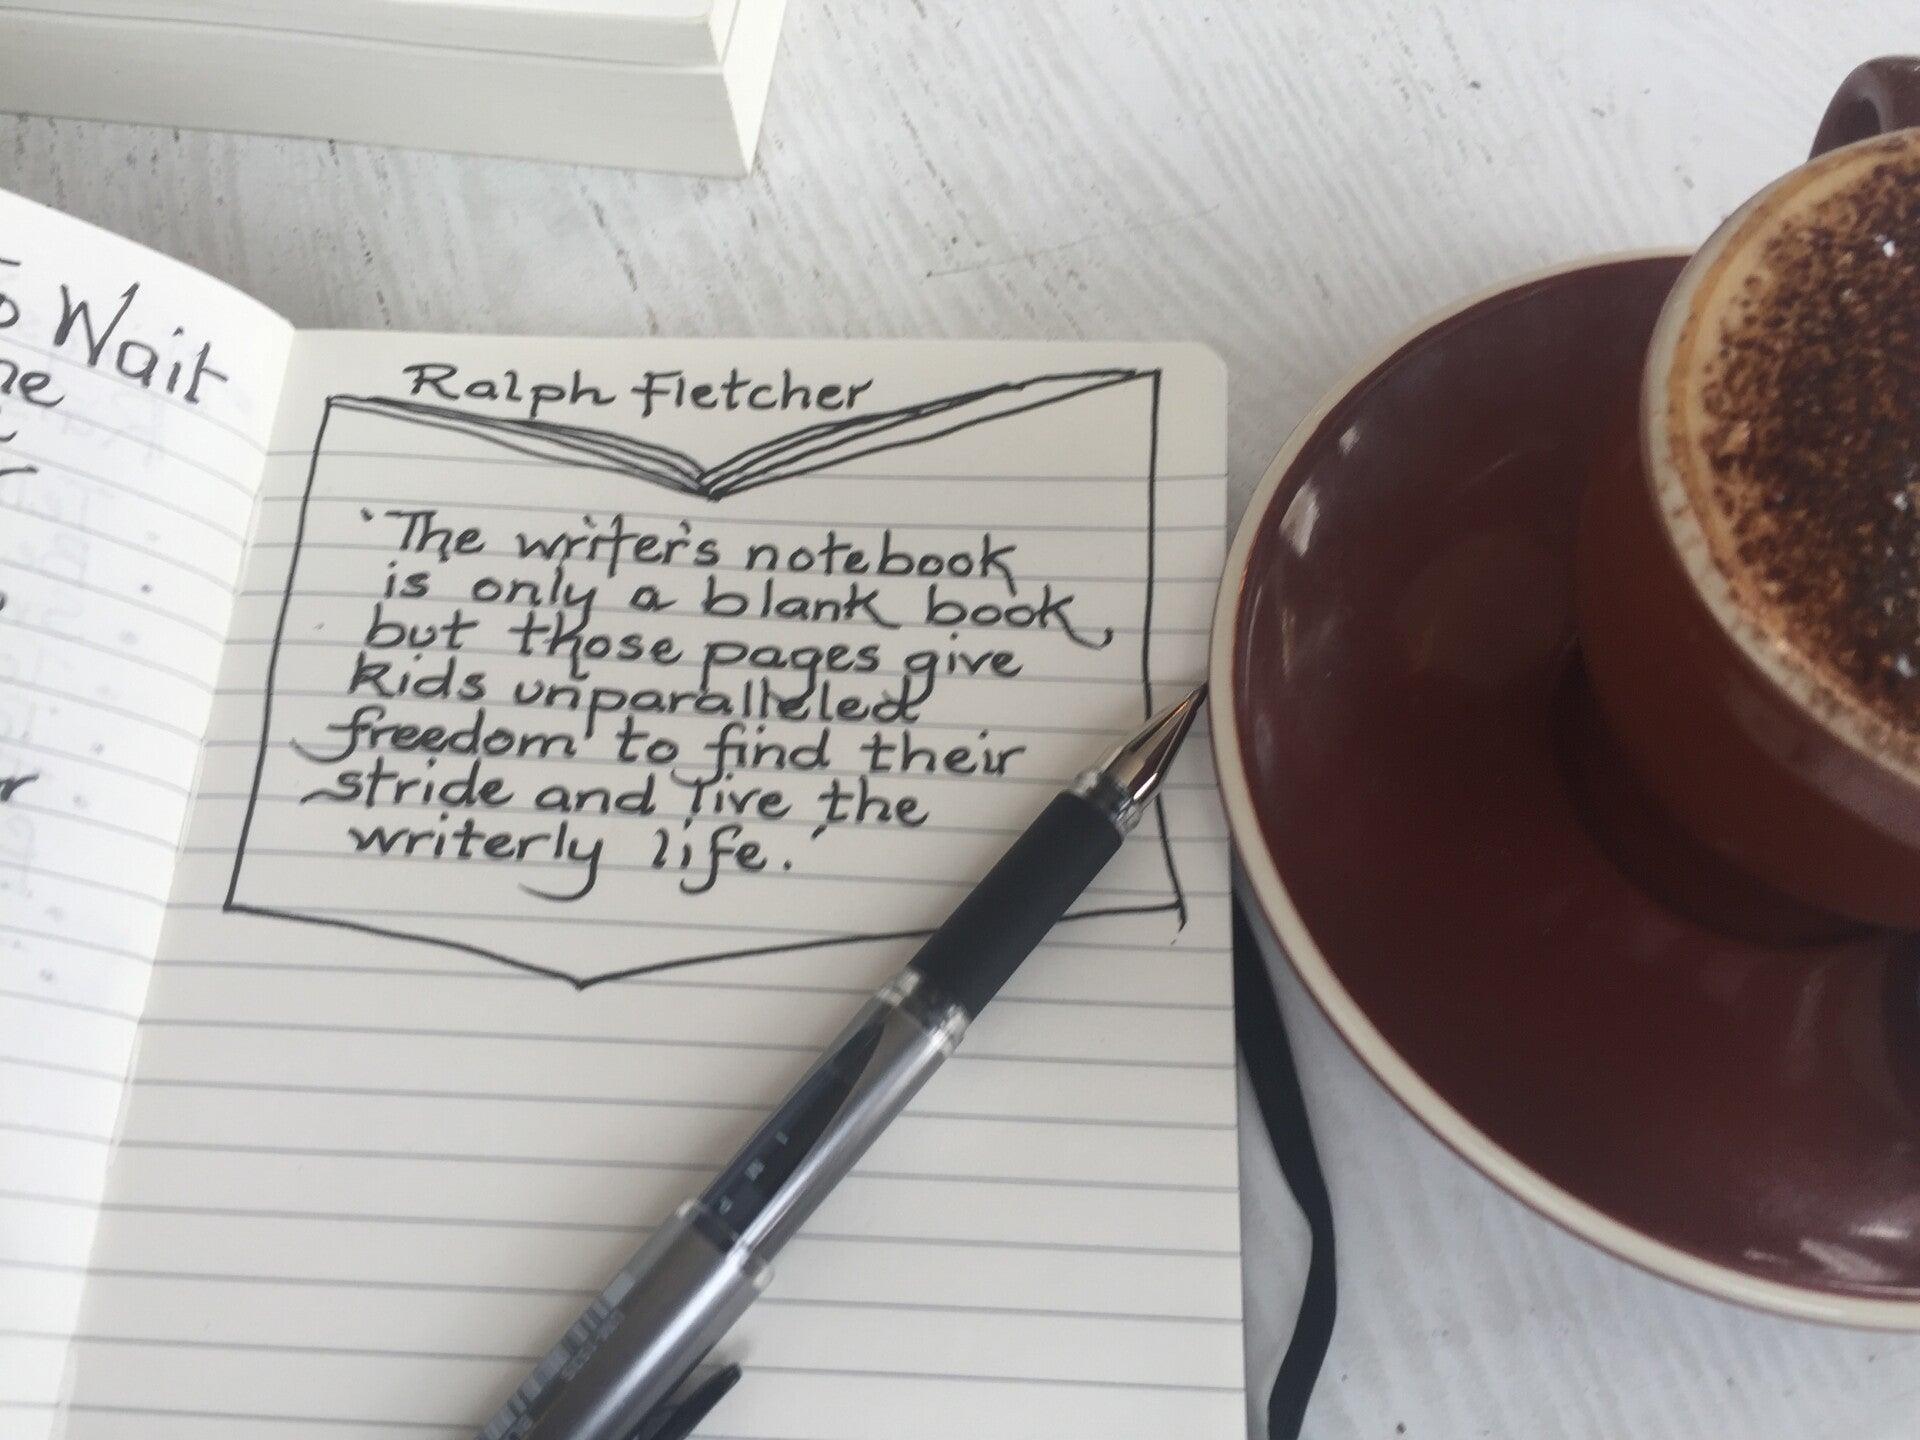 Wait
Ralph Fletcher
'The writer's notebook
is only a blank book,
but those pages give
kids unparalleled
freedom to find their
stride and live the
writerly life.'
I M P